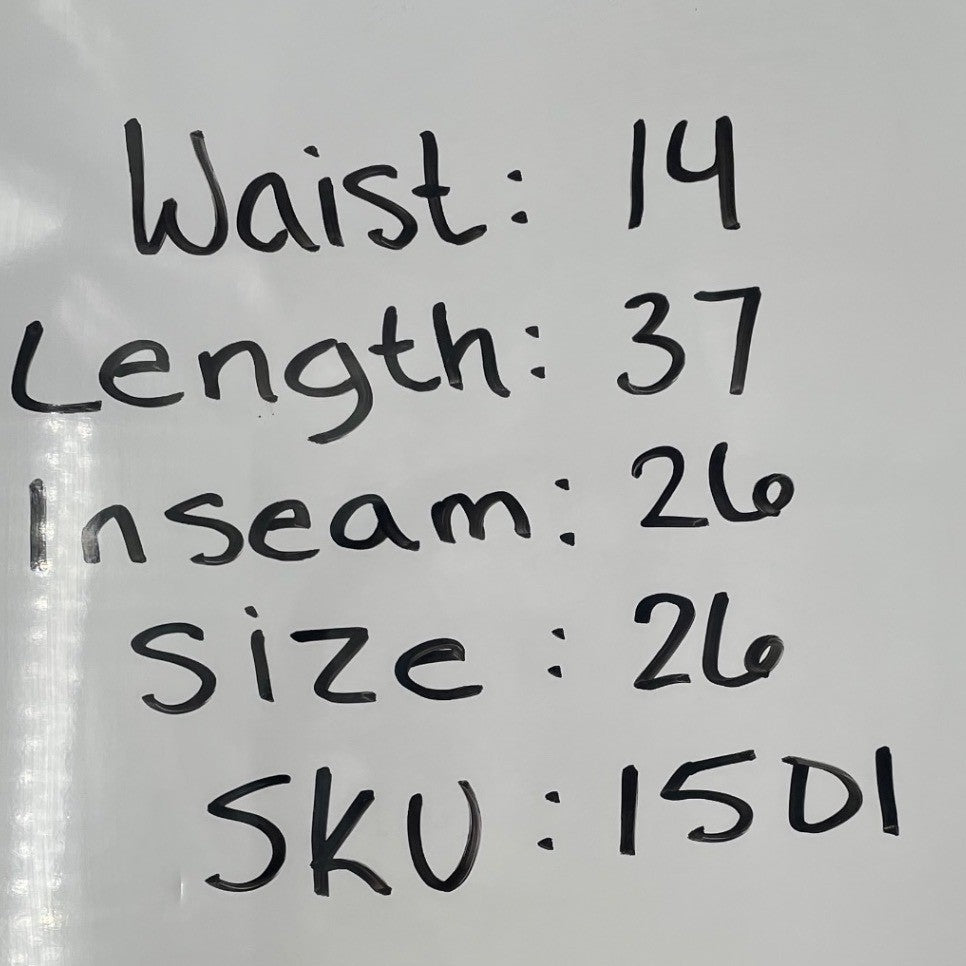 Waist: 14
Length: 37
Inseam: 26
Size: 26
SKU: 1501